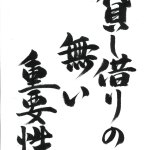 貸し借りの
無い
重要性